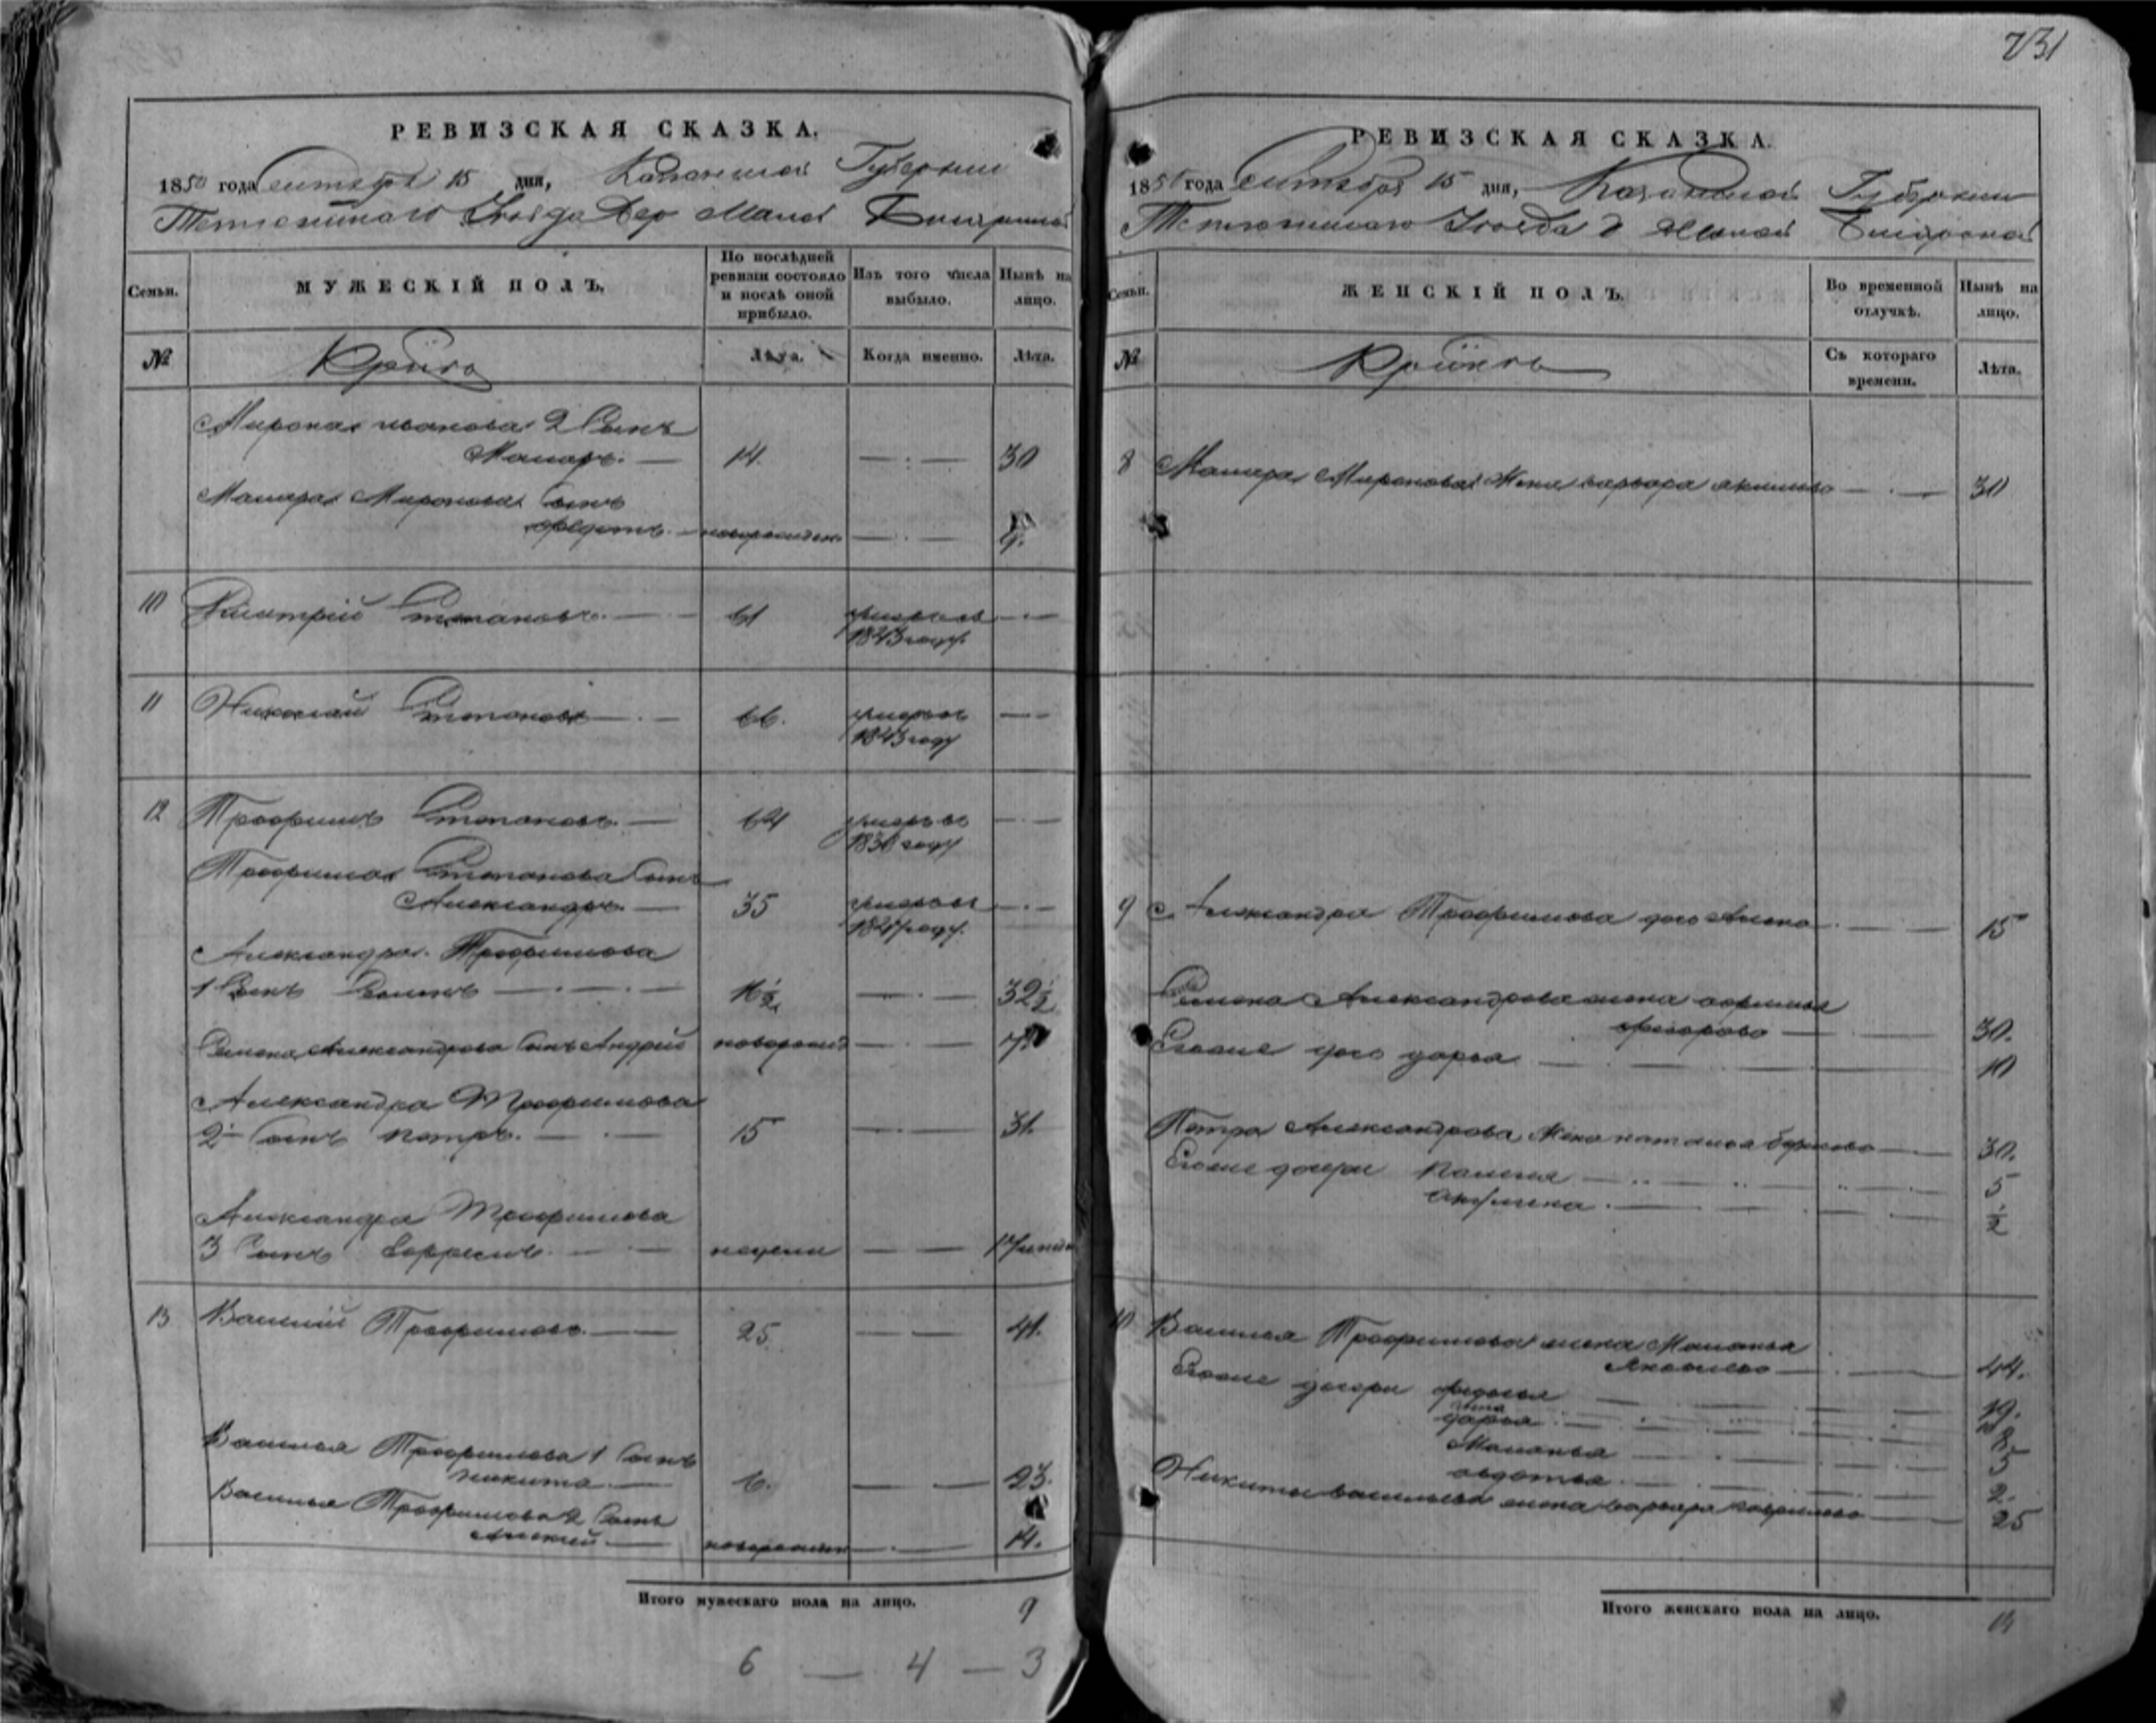 РЕВИЗСКАЯ СКАЗКА.
1850 года Сентября 15 дня, Казанской Губернии
Тетюшскаго Уезда Дер Малой
Семьи. МУЖЕСКІЙ ПОЛЪ. По послѣдней ревизіи состояло и послѣ оной прибыло. Изъ того числа выбыло. Нынѣ на лицо.
№ Лѣта. Когда именно. Лѣта.
Мирона иванова 2 Сынъ
Макаръ. 14. 30
Макара Миронова Сынъ
федотъ. новорожден. 9.
10 Дмитрій Степановъ. 61 умеръ въ
1843 году.
11 Николай Степановъ 66. умеръ въ
1843 году
12 Трофимъ Степановъ. 64 умеръ въ
году
Трофима Степанова Сынъ
Александръ. 35 умеръ въ
году.
Александра Трофимова
1 Сынъ Семенъ 16½ 32½
Семена Александрова Сынъ Андрей новорожд 7.
Александра Трофимова
2 Сынъ петръ. 15 31.
Александра Трофимова
3 Сынъ Ефремъ. недели
13 Василій Трофимовъ. 25. 41.
Василья Трофимова 1 Сынъ
никита 6. 23.
Василья Трофимова 2 Сынъ
Алексей. новорожден 14.
Итого мужескаго пола на лицо. 9
6 — 4 — 3
731
РЕВИЗСКАЯ СКАЗКА.
1850 года Сентября 15 дня, Казанской Губернии
Тетюшскаго Уезда Д Малой
Семьи. ЖЕНСКІЙ ПОЛЪ. Во временной отлучкѣ. Нынѣ на лицо.
№ Съ котораго времени. Лѣта.
8 Макара Миронова Жена варвара 30
9 Александра Трофимова дочь Алена 15
Семена Александрова жена
федорова 30.
Егоже дочь дарья 10
Петра Александрова Жена наталья 30.
Егоже дочери 5
акулина. ½
10 Василья Трофимова жена Маланья
Яковлева 44.
Егоже дочери федосья 19.
дарья 8
Маланья 5
авдотья 2.
Никиты васильева жена варвара гаврилова 25
Итого женскаго пола на лицо.